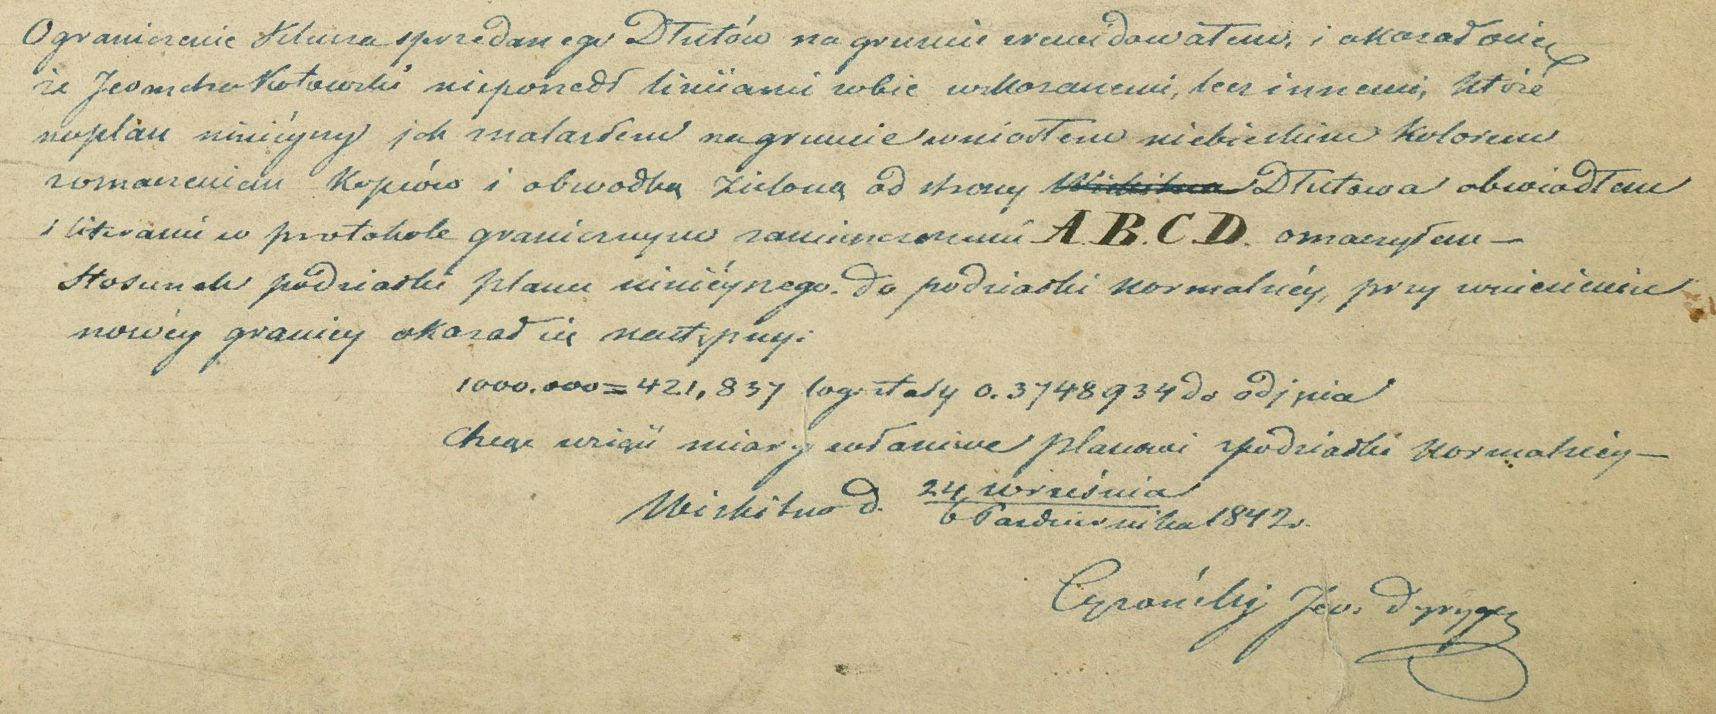 Ograniczenie Klucza sprzedanego Dłutów na gruncie zrewidowałem, i okazało się
że Jeometra Kotowski nieposzedł liniiami sobie wskazanemi, lecz innemi, które
na plan niniéyszy jak znalazłem na gruncie wniosłem niebieskim kolorem
z oznaczeniem Kopców i obwodką zieloną od strony Wiskitna Dłutowa obwiodłem
i literami w protokole granicznym zamieszczonemi A.B.C.D. oznaczyłem —
Stosunek podziałki planu niniéyszego do podziałki normalnéy, przy wniesieniu
nowéy granicy okazał się następny:
1000.000 = 421,837 log: stały 0.3748934 do odjęcia
Chcąc wziąść miary właściwe planowi z podziałki normalnéy —
Wiskitno d. 24 września
6 Października 1842 r.
Jeo.